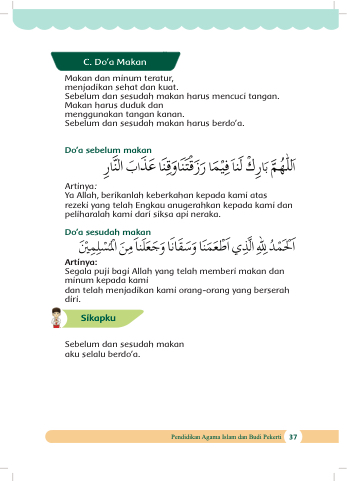 C. Do'a Makan
Makan dan minum teratur,
menjadikan sehat dan kuat.
Sebelum dan sesudah makan harus mencuci tangan.
Makan harus duduk dan
menggunakan tangan kanan.
Sebelum dan sesudah makan harus berdo'a.
Do'a sebelum makan
اَللّٰهُمَّ بَارِكْ لَنَا فِيْمَا رَزَقْتَنَا وَقِنَا عَذَابَ النَّارِ
Artinya:
Ya Allah, berikanlah keberkahan kepada kami atas
rezeki yang telah Engkau anugerahkan kepada kami dan
peliharalah kami dari siksa api neraka.
Do'a sesudah makan
اَلْحَمْدُ لِلّٰهِ الَّذِي اَطْعَمَنَا وَسَقَانَا وَجَعَلَنَا مِنَ الْمُسْلِمِيْنَ
Artinya:
Segala puji bagi Allah yang telah memberi makan dan
minum kepada kami
dan telah menjadikan kami orang-orang yang berserah
diri.
Sikapku
Sebelum dan sesudah makan
aku selalu berdo'a.
Pendidikan Agama Islam dan Budi Pekerti 37